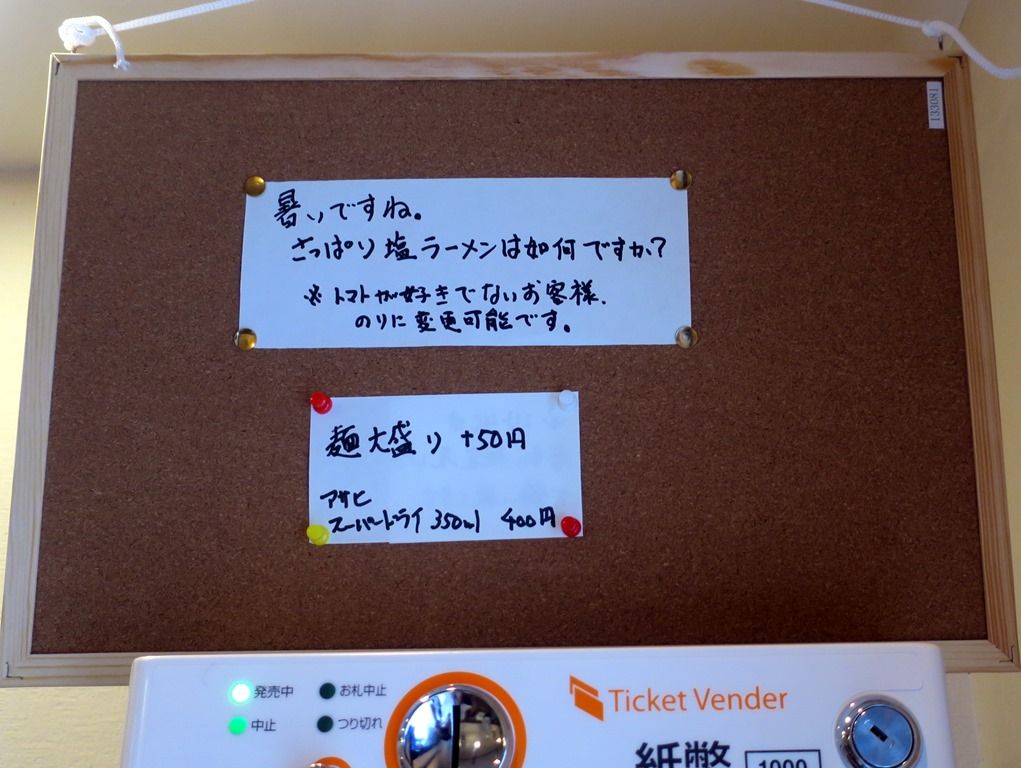 133081
暑いですね。
さっぱり塩ラーメンは如何ですか?
※トマトが好きでないお客様、
のりに変更可能です。
麺大盛り +50円
アサヒ
スーパードライ 350ml 400円
発売中 お札中止
中止 つり切れ
Ticket Vender
紙幣 1000